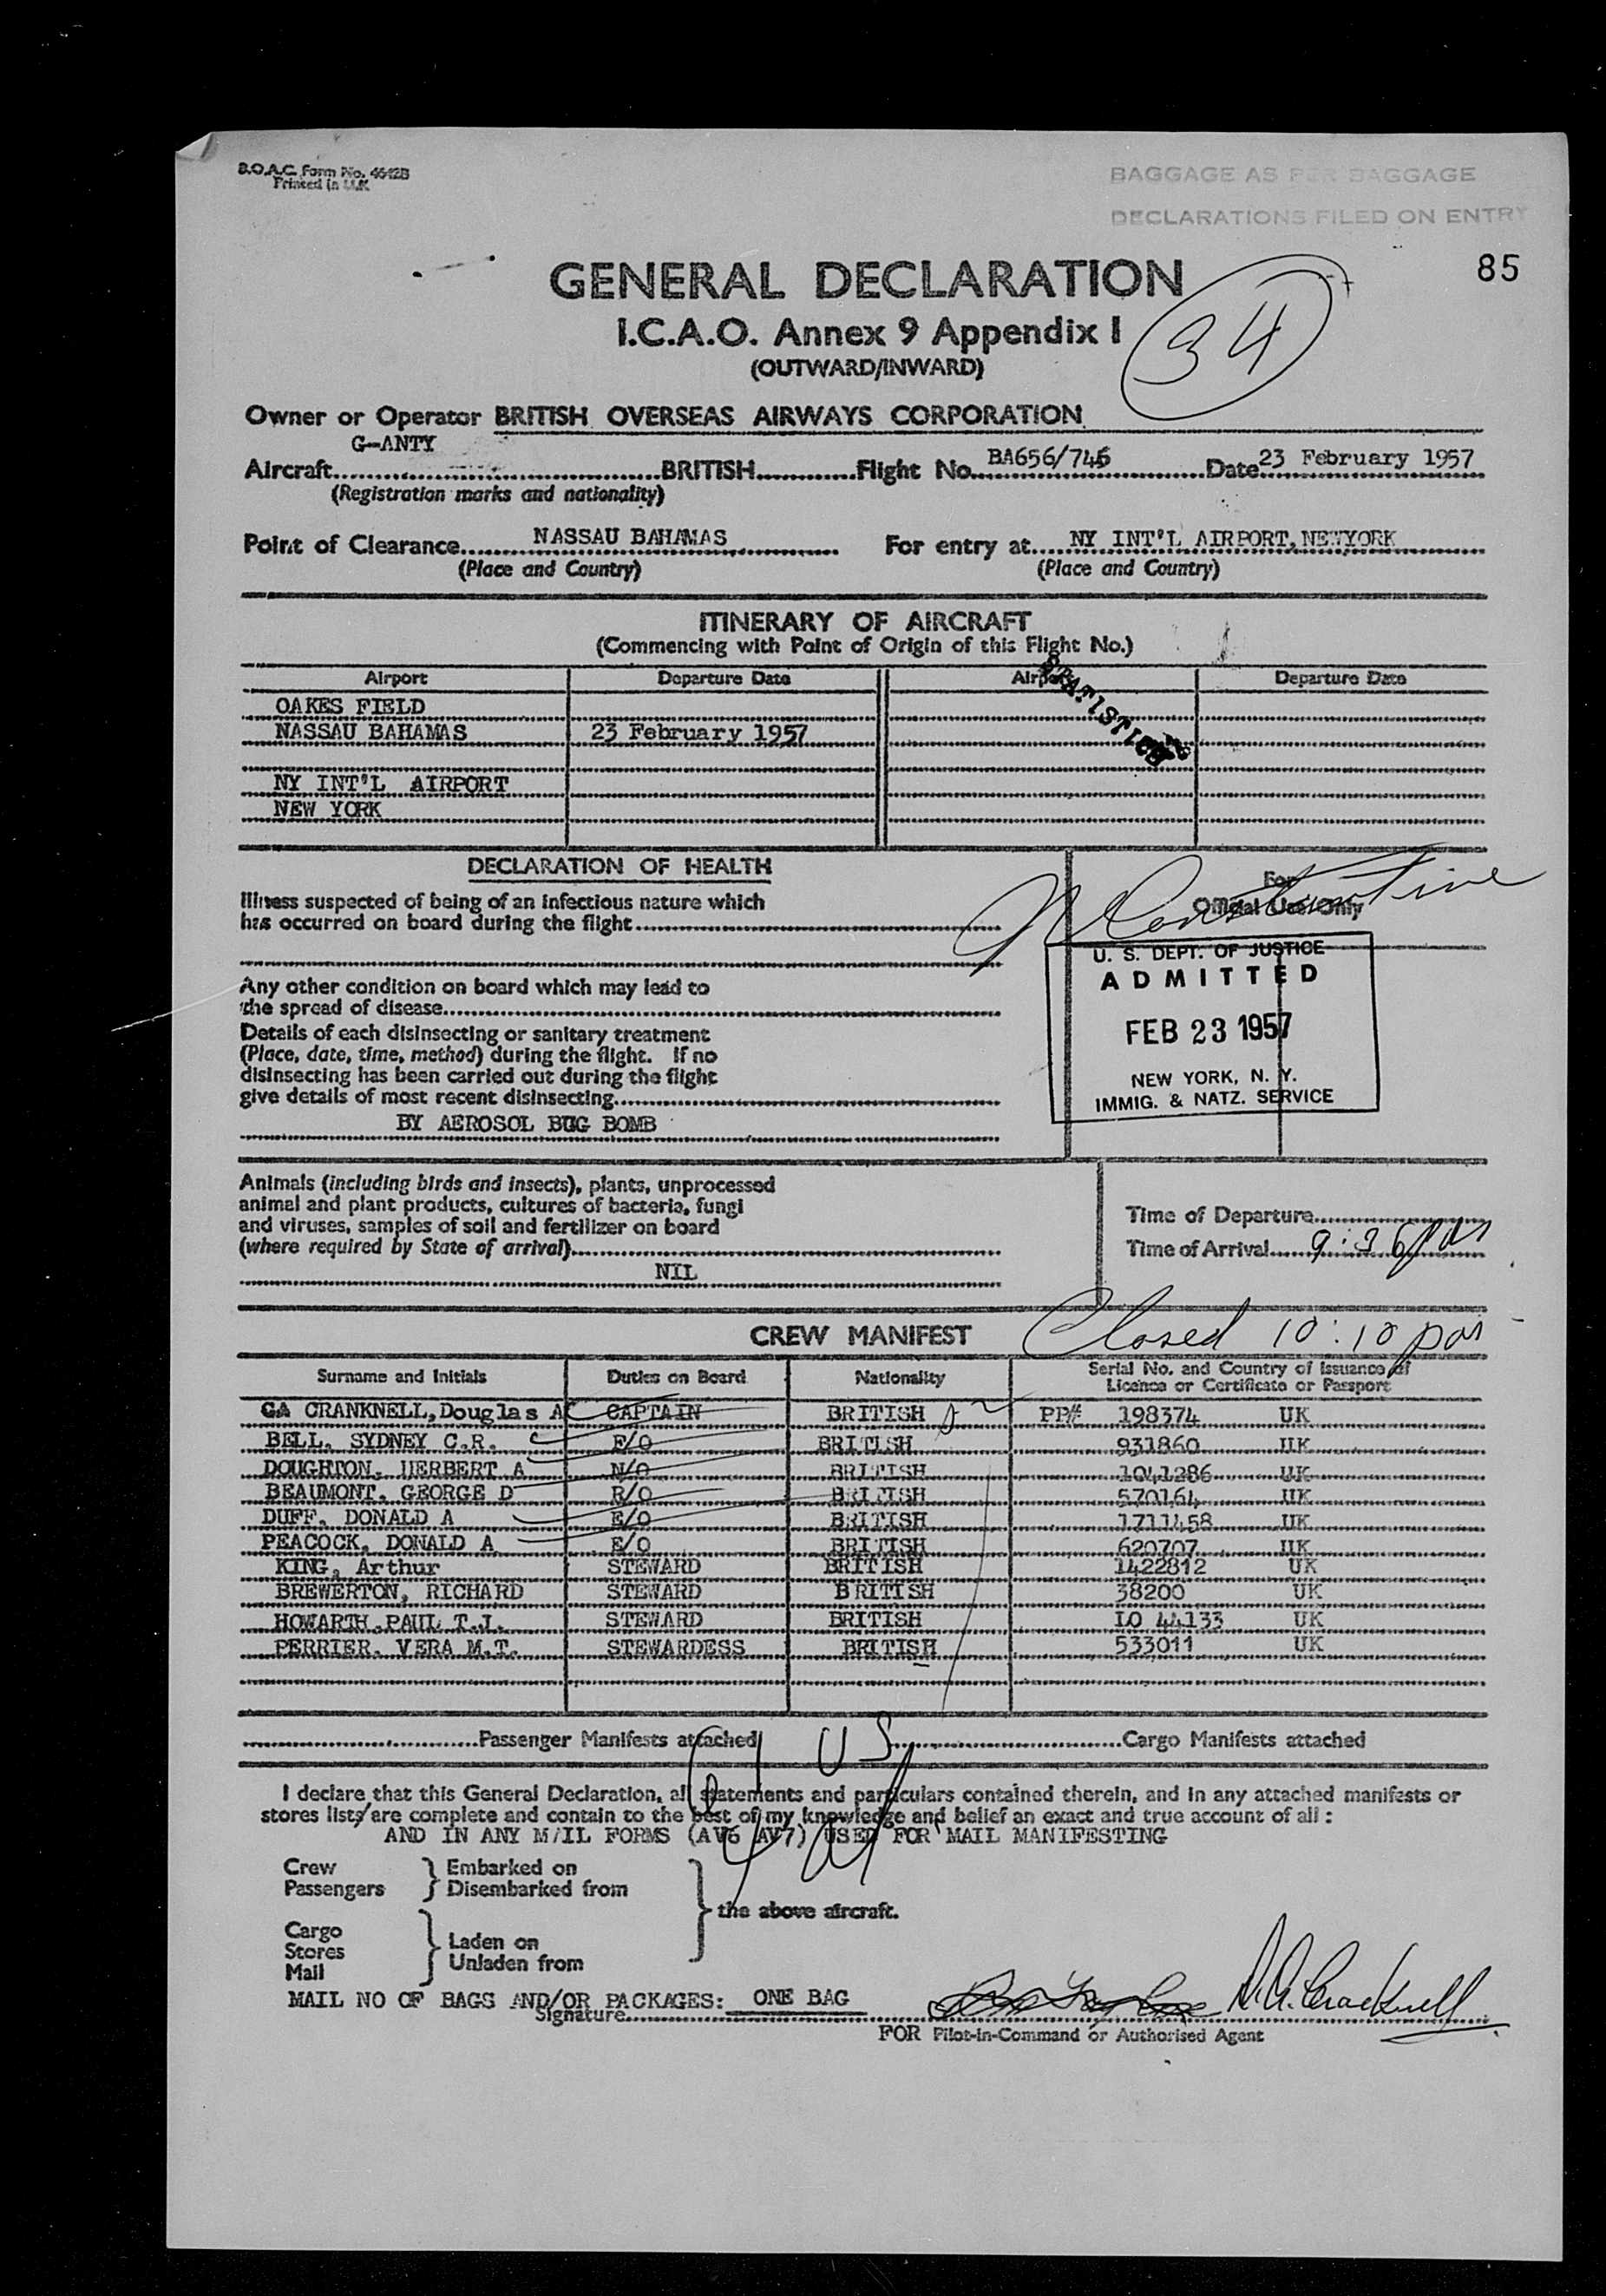 B.O.A.C. Form No. 4642B
Printed in U.K.
BAGGAGE AS PER BAGGAGE
DECLARATIONS FILED ON ENTRY
85
GENERAL DECLARATION
I.C.A.O. Annex 9 Appendix I
34
(OUTWARD/INWARD)
Owner or Operator BRITISH OVERSEAS AIRWAYS CORPORATION
Aircraft G-ANTY BRITISH Flight No. BA656/746 Date 23 February 1957
(Registration marks and nationality)
Point of Clearance NASSAU BAHAMAS For entry at NY INT'L AIRPORT, NEWYORK
(Place and Country) (Place and Country)
ITINERARY OF AIRCRAFT
(Commencing with Point of Origin of this Flight No.)
Airport Departure Date Airport Departure Date
STATISTICS
OAKES FIELD
NASSAU BAHAMAS 23 February 1957
NY INT'L AIRPORT
NEW YORK
DECLARATION OF HEALTH
For
Official Use Only
Constantine
Illness suspected of being of an infectious nature which
has occurred on board during the flight
Any other condition on board which may lead to
the spread of disease
Details of each disinsecting or sanitary treatment
(Place, date, time, method) during the flight. If no
disinsecting has been carried out during the flight
give details of most recent disinsecting
BY AEROSOL BUG BOMB
U. S. DEPT. OF JUSTICE
ADMITTED
FEB 23 1957
NEW YORK, N. Y.
IMMIG. & NATZ. SERVICE
Animals (including birds and insects), plants, unprocessed
animal and plant products, cultures of bacteria, fungi
and viruses, samples of soil and fertilizer on board
(where required by State of arrival)
NIL
Time of Departure
Time of Arrival 9:36 PM
Closed 10:10 pm
CREW MANIFEST
Surname and Initials Duties on Board Nationality Serial No. and Country of Issuance of
Licence or Certificate or Passport
CA CRANKNELL, Douglas A CAPTAIN BRITISH PP# 198374 UK
BELL, SYDNEY C.R. F/O BRITISH 931860 UK
DOUGHTON, HERBERT A N/O BRITISH 1041286 UK
BEAUMONT, GEORGE D R/O BRITISH 570164 UK
DUFF, DONALD A E/O BRITISH 1711458 UK
PEACOCK, DONALD A E/O BRITISH 620707 UK
KING, Arthur STEWARD BRITISH 1422812 UK
BREWERTON, RICHARD STEWARD BRITISH 38200 UK
HOWARTH, PAUL T.J. STEWARD BRITISH LO 44133 UK
PERRIER, VERA M.T. STEWARDESS BRITISH 533011 UK
Passenger Manifests attached US Cargo Manifests attached
I declare that this General Declaration, all statements and particulars contained therein, and in any attached manifests or
stores lists, are complete and contain to the best of my knowledge and belief an exact and true account of all :
AND IN ANY MAIL FORMS (AV6 AV7) USED FOR MAIL MANIFESTING
Crew Embarked on
Passengers Disembarked from
the above aircraft.
Cargo Laden on
Stores Unladen from
Mail
MAIL NO OF BAGS AND/OR PACKAGES: ONE BAG
Signature D.A. Cracknell
FOR Pilot-in-Command or Authorised Agent